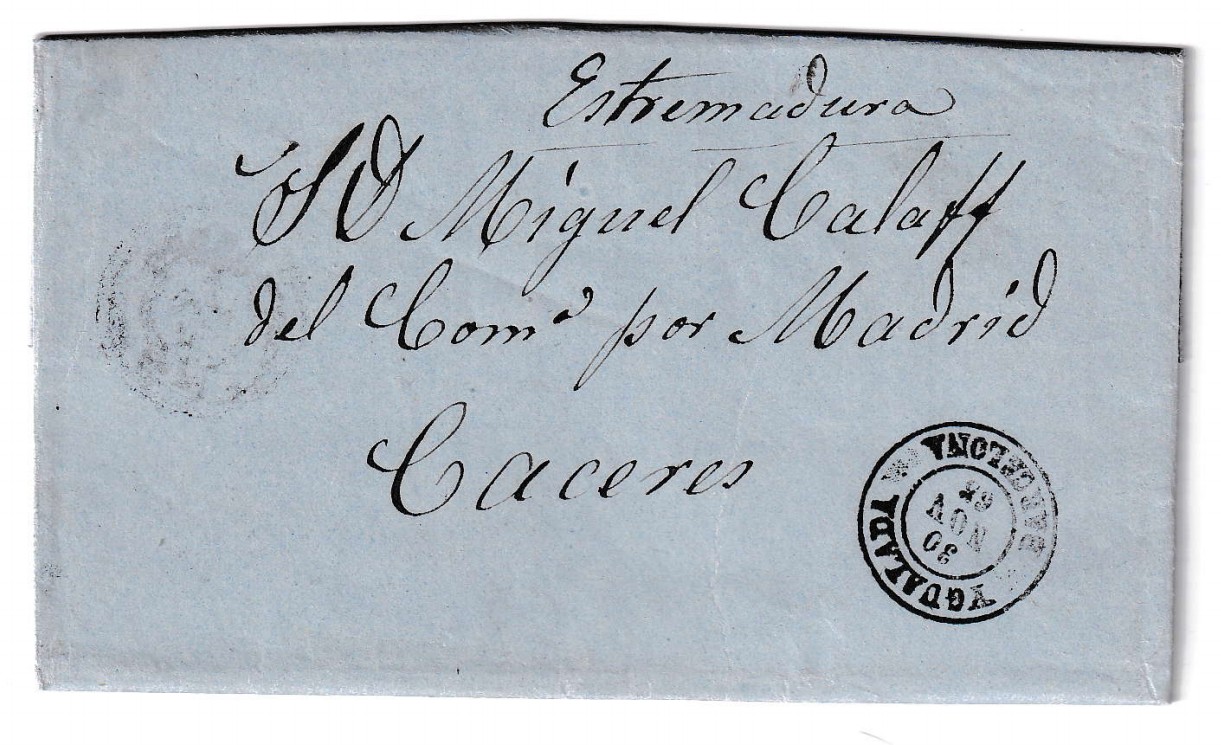 Estremadura
S D Miguel Calaff
del Com.º por Madrid
Caceres
YGUALADA BARCELONA
30
NOV
65